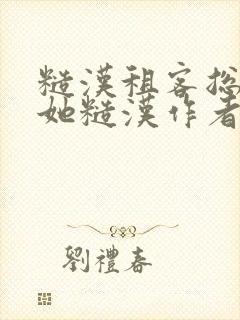 糙漢租客总
她糙漢作者
劉禮春